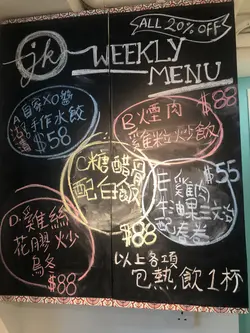 ALL 20% OFF
jk WEEKLY
MENU
A. 自家XO醬
手作水餃
$58
B. 煙肉
雞粒炒飯
$88
C. 糖醋骨
配白飯
$88
D. 雞絲
花膠炒
烏冬
$88
E. 雞肉
牛油果三文治
$55
以上各項
包熱飲1杯